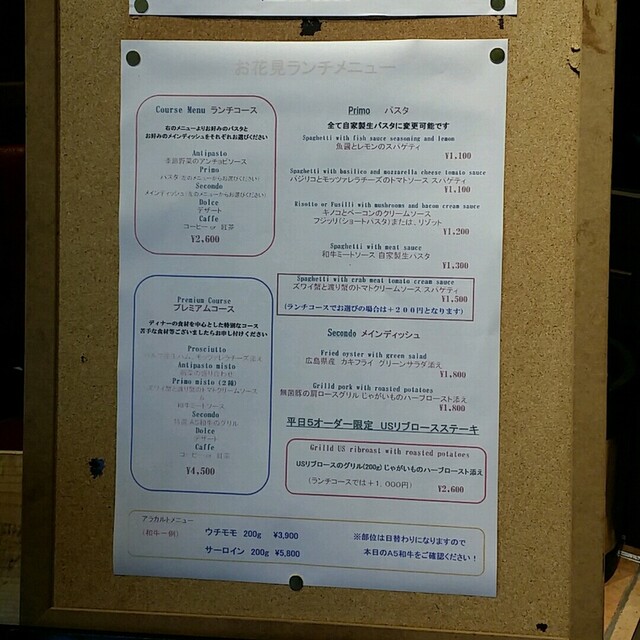 お花見ランチメニュー
Course Menu ランチコース
右のメニューよりお好みのパスタと
お好みのメインディッシュをそれぞれお選びください
Antipasto
季節野菜のアンチョビソース
Primo
パスタ(左のメニューからお選びください)
Secondo
メインディッシュ(左のメニューからお選びください)
Dolce
デザート
Caffe
コーヒー or 紅茶
¥2,600
Premium Course
プレミアムコース
ディナーの食材を中心とした特別なコース
苦手な食材等ございましたらお申し付けください
Prosciutto
モッツァレラチーズ添え
Antipasto misto
前菜の盛り合わせ
Primo misto (2種)
ズワイ蟹と渡り蟹のトマトクリームソース
&
和牛ミートソース
Secondo
A5和牛のグリル
Dolce
デザート
Caffe
コーヒー or 紅茶
¥4,500
Primo パスタ
全て自家製生パスタに変更可能です
Spaghetti with fish sauce seasoning and lemon
魚醤とレモンのスパゲティ
¥1,100
Spaghetti with basilico and mozzarella cheese tomato sauce
バジリコとモッツァレラチーズのトマトソース スパゲティ
¥1,100
Risotto or Fusilli with mushrooms and bacon cream sauce
キノコとベーコンのクリームソース
フジッリ(ショートパスタ)または、リゾット
¥1,200
Spaghetti with meat sauce
和牛ミートソース 自家製生パスタ
¥1,300
Spaghetti with crab meat tomato cream sauce
ズワイ蟹と渡り蟹のトマトクリームソース スパゲティ
¥1,500
(ランチコースでお選びの場合は+200円となります)
Secondo メインディッシュ
Fried oyster with green salad
広島県産 カキフライ グリーンサラダ添え
¥1,800
Grilld pork with roasted potatoes
無菌豚の肩ロースグリル じゃがいものハーブロースト添え
¥1,800
平日5オーダー限定 USリブロースステーキ
Grilld US ribroast with roasted potatoes
USリブロースのグリル(200g)じゃがいものハーブロースト添え
(ランチコースでは+1,000円)
¥2,600
アラカルトメニュー
(和牛一例)
ウチモモ 200g ¥3,900
サーロイン 200g ¥5,800
※部位は日替わりになりますので
本日のA5和牛をご確認ください!